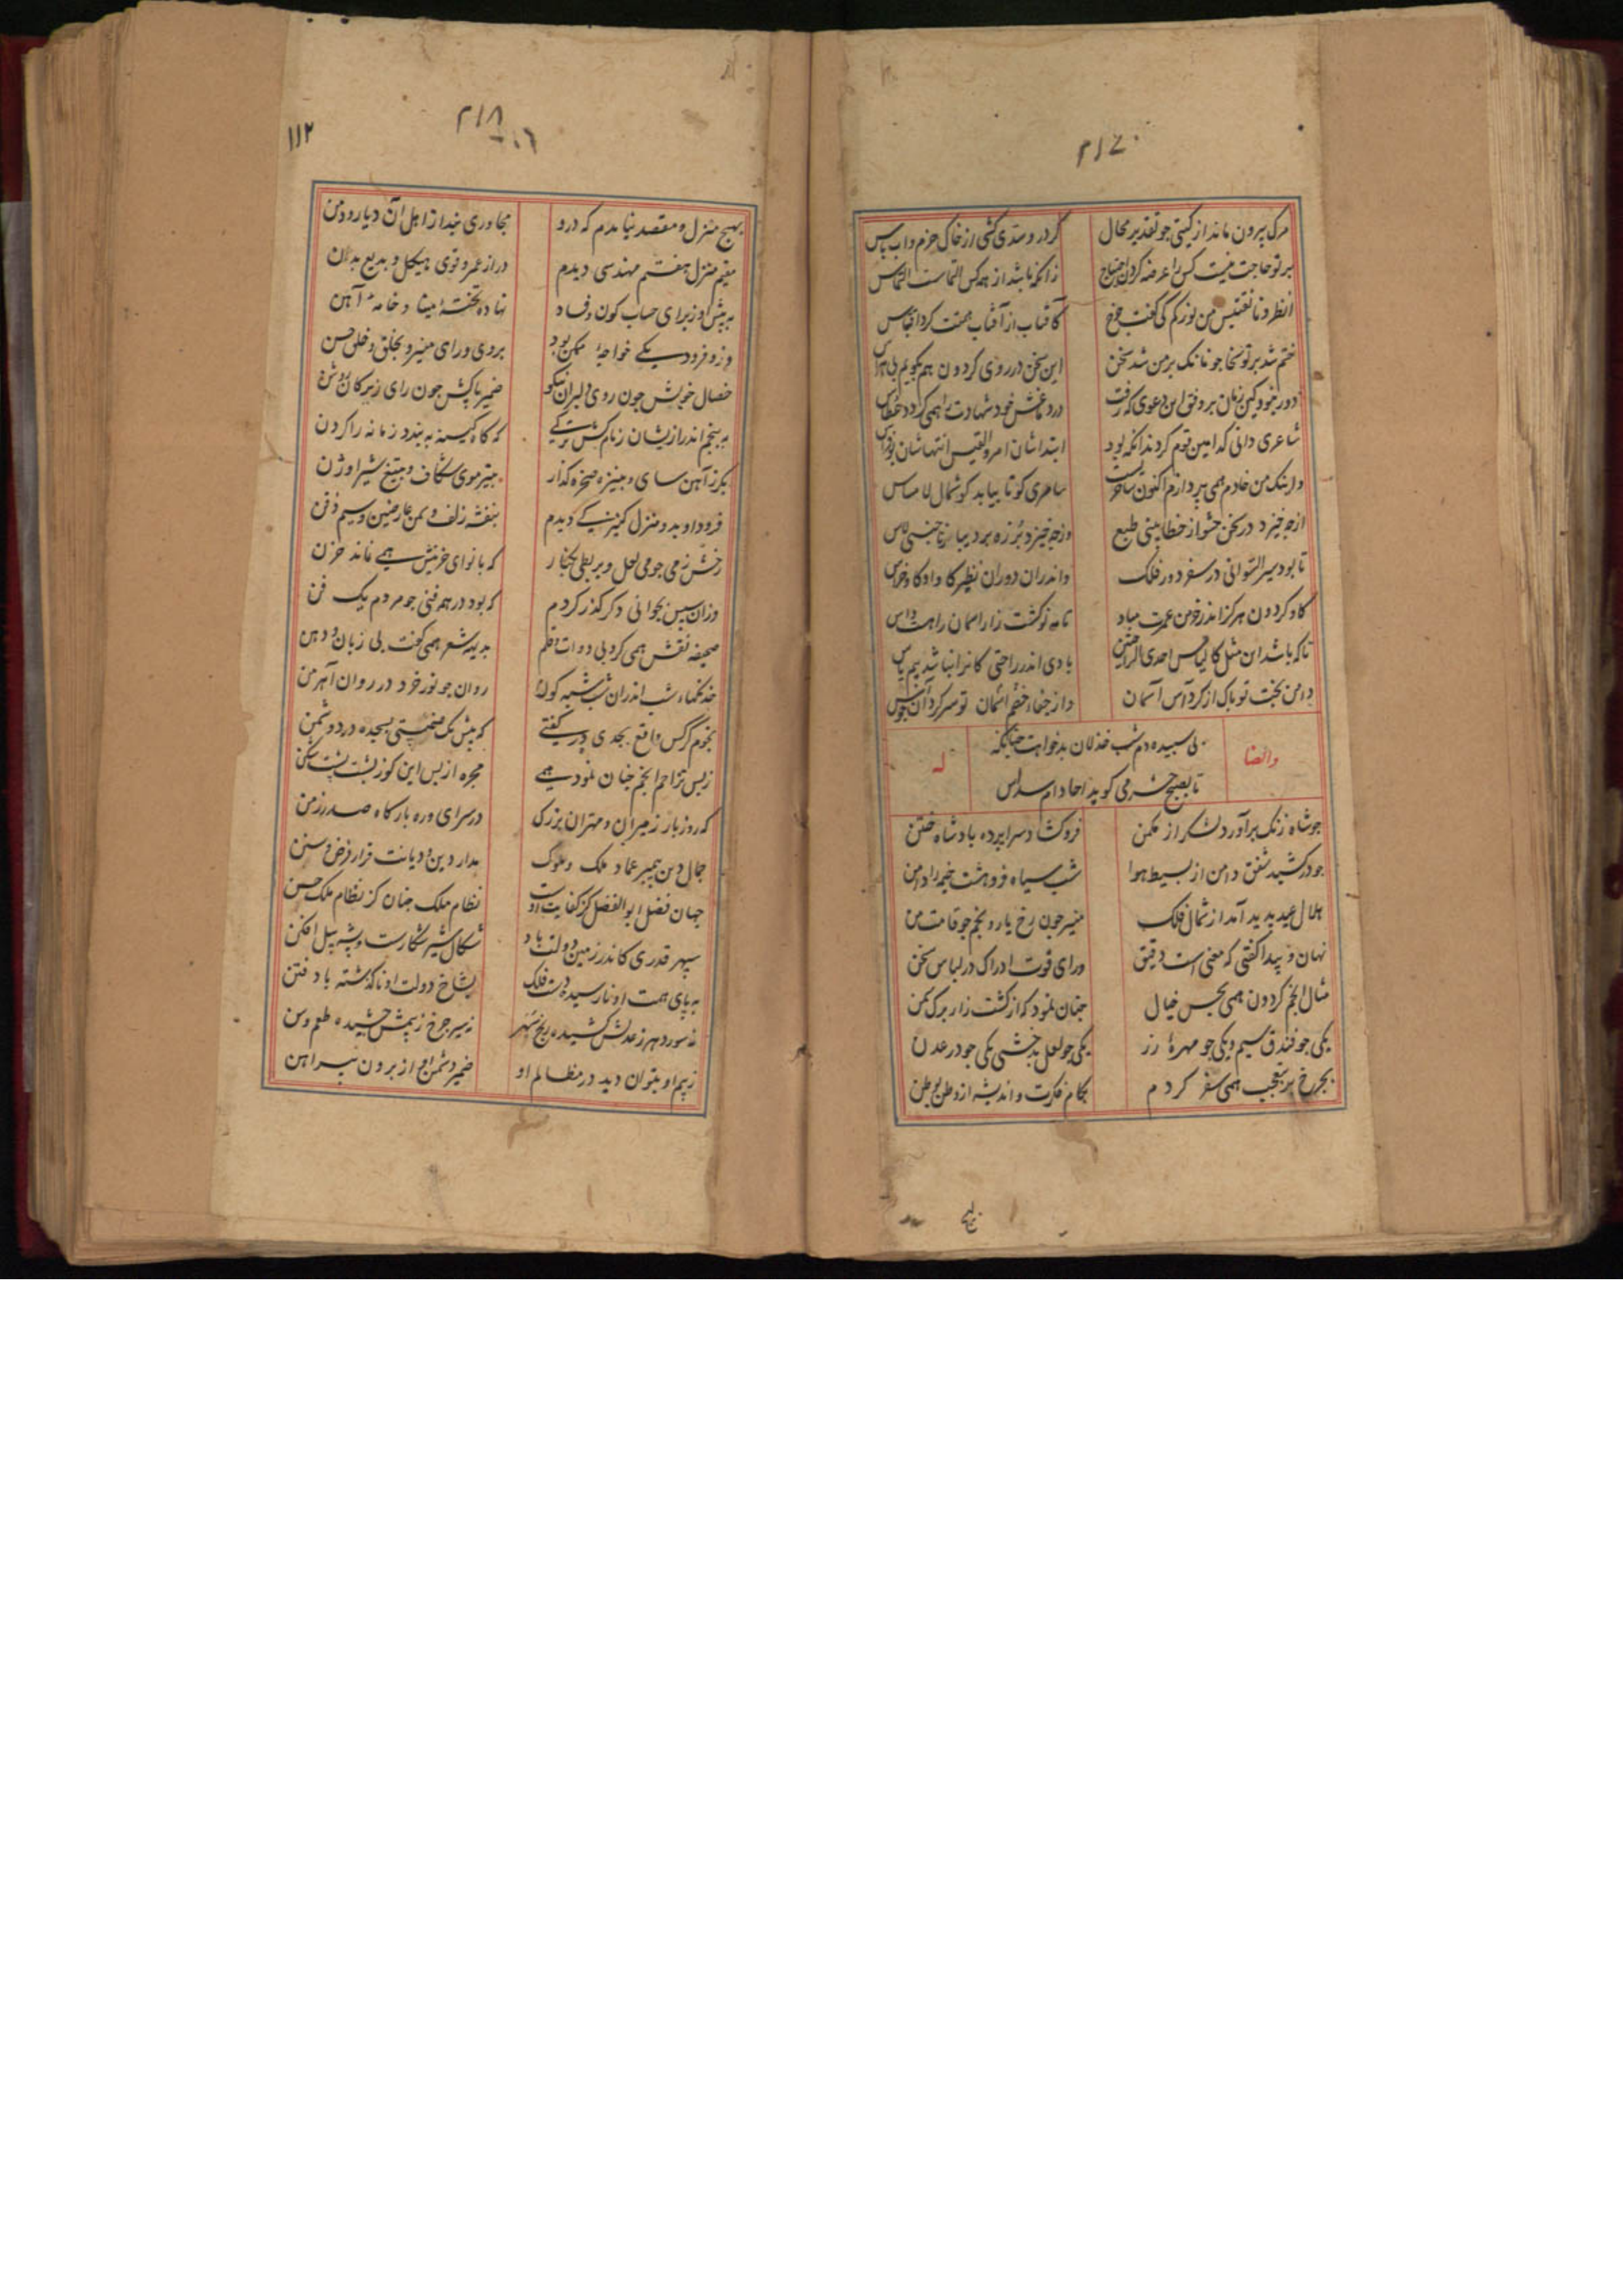 ۲۱۷۰
مرک بیرون ماند از کیتی جو تقدیر محال
کر در و سدی کشی از خاک حزم و اب باس
بر تو حاجت نیست کس را عرضه کردن احتیاج
زانکه باشد از همه کس التماست التماس
انظرونا نقتبس من نورکم کی گفت چرخ
کافتاب از آفتاب همتت کرد اقتباس
ختم شد بر تو سخا جونانک بر من شد سخن
این سخن در روی کردون هم بکویم بی هراس
دور نبود کین زمان بر وفق این دعوی که رفت
در دماغش خود شهادت را همی کردد عطاس
شاعری دانی کدامین قوم کردند انکه بود
ابتداشان امرو القیس انتهاشان بوفراس
واینک من خادم همی پردازم اکنون ساحریست
سامری کو تا بیابد کوشمال لا مساس
از جه خیزد در سخن حشو از خطا بینی طبع
وزجه خیزد برزه بر دیبا ز ناجنسی لاس
تا بود سیر السوانی در سفر دور فلک
واندران دوران نظیر کاو او کاو خراس
کاو کردون هرکز اندر خرمن عمرت مباد
تا مه نو کشت زار اسمان راهست داس
تا که باشد ان مثل کالیاس احدی الراحتین
بادی اندر راحتی کانرا نباشد بیم یاس
دامن بخت تو باک از کرد آس آسمان
واز جفاء خصم ائمان تو سرکردان جو آس
وایضا
بی سبیده دم شب خذلان بدخواهت جنانکه
له
تا بصبح حشر می کوید احاد ام سداس
جو شاه زنک برآورد لشکر از مکمن
فروکشاد سرابرده بادشاه ختن
جو درکشید شفق دامن از بسیط هوا
شب سیاه فروهشت خیمه را دامن
هلال عید بدید آمد از شمال فلک
منیر جون رخ یار و بخم جو قامت من
نهان و پیدا کفتی که معنی است دقیق
ورای قوت ادراک در لباس سخن
مثال انجم کردون همی بحس خیال
جنان نمود که از کشت زار برک سمن
یکی جو فندق سیم و یکی جو مهرهٔ زر
یکی جو لعل بدخشی یکی جو در عدن
بجرخ بر بتعجب همی سفر کردم
بکام فکرت و اندیشه از وطن بوطن
۲۱۸
۱۱۲
بهیج منزل و مقصد نیامدم که درو
مجاوری نبد از اهل آن دیار و دمن
مقیم منزل هفتم مهندسی دیدم
دراز عمر و قوی هیکل و بدیع بدن
به پیش او ز برای حساب کون و فساد
نهاده تختهٔ مینا و خامهٔ آهن
وزو فرود یکی خواجهٔ ممکن بود
بروی و رای منیر و بخلق و خلق حسن
خصال خویش جون روی دلبران نیکو
ضمیر پاکش جون رای زیرکان روشن
به پنجم اندر ازیشان زمام کش ترکی
که کاه کینه به بندد زمانه را کردن
بکرز آهن سای و به نیزه صخره کذار
به تیر موی شکاف و به تیغ شیر اوژن
فرود او بدو منزل کنیزکی دیدم
بنفشه زلف و سمن عارضین و سیم ذقن
رخش زمی جو می لعل و بربطی بکنار
که با نوای حزینش همی نماند حزن
وزان سبس بجوانی دکر کذر کردم
که بود در همه فنی جو مردم یک فن
صحیفه نقش همی کرد بی دوات و قلم
بدیهه شعر همی کفت بی زبان و دهن
خدنکهاء شب اندران شب شبه کون
روان جو نور خرد در روان آهرمن
نجوم کرکس واقع بجدی در کفتی
که پیش یک صنمستی بسجده در دو شمن
ز بس تزاحم انجم جنان نمود همی
مجره از پس این کوز پشت پشت شکن
که روز بار ز میران و مهتران بزرک
در سرای و ره بارکاه صدر زمن
جمال دین پیمبر عماد ملک و ملوک
مدار دین و دیانت قرار فرض و سنن
جهان فضل ابوالفضل کز کفایت اوست
نظام ملک جنان کز نظام ملک حسن
سپهر قدری کاندر زمین دولت باد
شکال شیر شکارست و پشه پیل افکن
به پای همت او نارسیده دست فلک
ز شاخ دولت او ناکذشته باد فتن
نه سوردهر ز عدلش کشیده رنج سهر
نه سیر جرخ ز بیمش جشیده طعم وسن
ز بیم او بتوان دید در مظالم او
ضمیر دشمن او از برون پیراهن